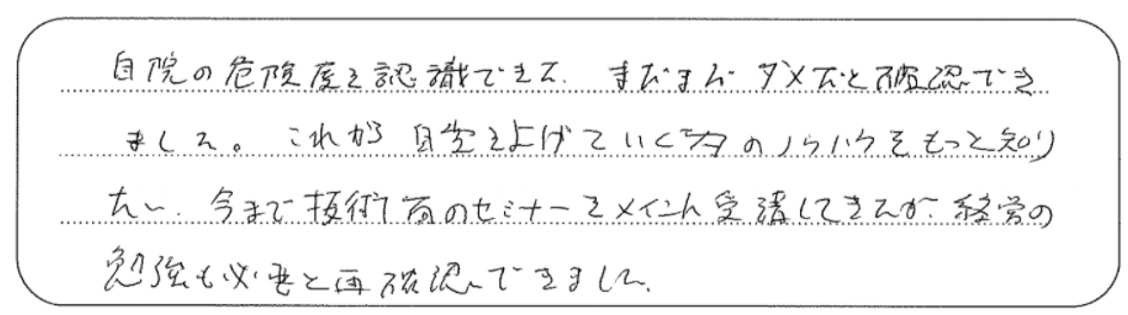 自院の危険度を認識できた。まだまだダメだと確認でき
ました。これから自分を上げていく為のノウハウをもっと知り
たい。今まで技術面のセミナーをメインに受講してきたが、経営の
勉強も必要と再確認できました。